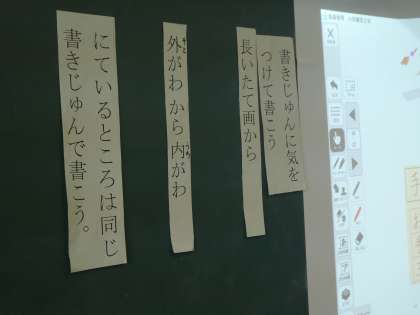 書きじゅんに気を
つけて書こう
長いたて画から
外がわから内がわ
にているところは同じ
書きじゅんで書こう。